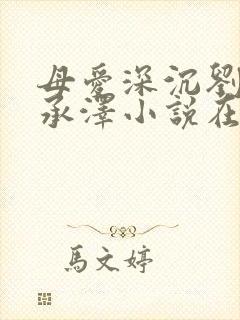 母愛深沉劉
承澤小說在
馬文婷